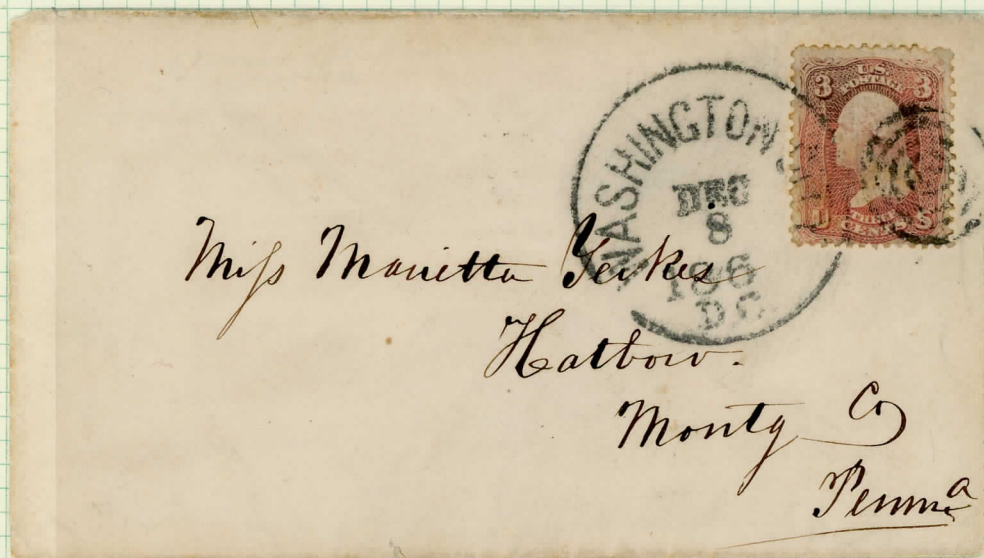 3 U.S. 3
POSTAGE
THREE
CENTS
WASHINGTON
DEC
8
186
D.C.
Miss Marietta Yerkes
Hatboro.
Montg Co
Penna